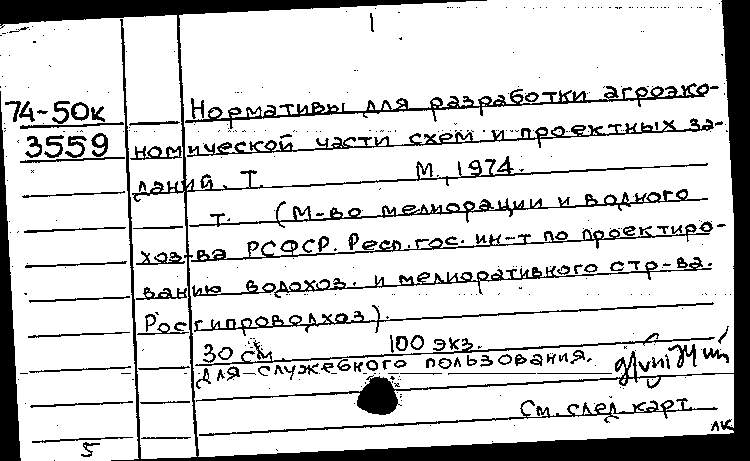 74-50к
3559
Нормативы для разработки агроэко-
номической части схем и проектных за-
даний. Т. М., 1974.
т. (М-во мелиорации и водного
хоз-ва РСФСР. Респ. гос. ин-т по проектиро-
ванию водохоз. и мелиоративного стр-ва.
Росгипроводхоз).
30 см. 100 экз.
Для служебного пользования.
См. след. карт.
5
ЛК